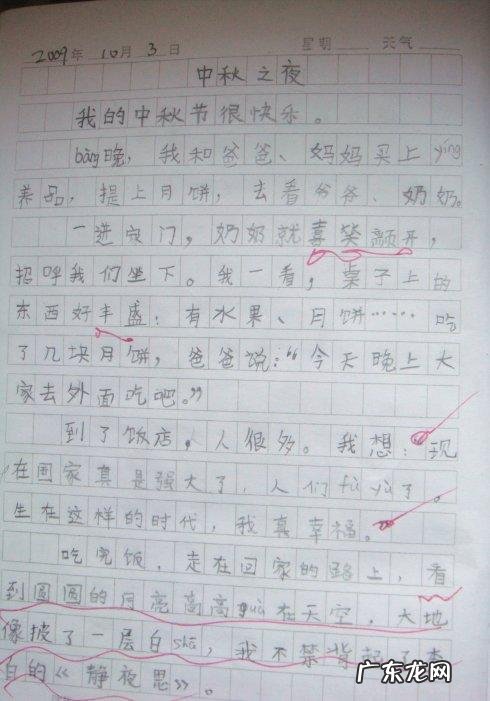 2009年 10月 3日 星期 天气
中秋之夜
我的中秋节很快乐。
bàng晚，我和爸爸、妈妈买上yíng
养品，提上月饼，去看爷爷、奶奶。
一进家门，奶奶就喜笑颜开，
招呼我们坐下。我一看，桌子上的
东西好丰盛：有水果、月饼……吃
了几块月饼，爸爸说：“今天晚上大
家去外面吃吧。”
到了饭店，人很多。我想：现
在国家真是强大了，人们fù yù了。
生在这样的时代，我真幸福。
吃完饭，走在回家的路上，看
到圆圆的月亮高高guà在天空，大地
像披了一层白shā，我不禁背起了李
白的《静夜思》。
广东龙网